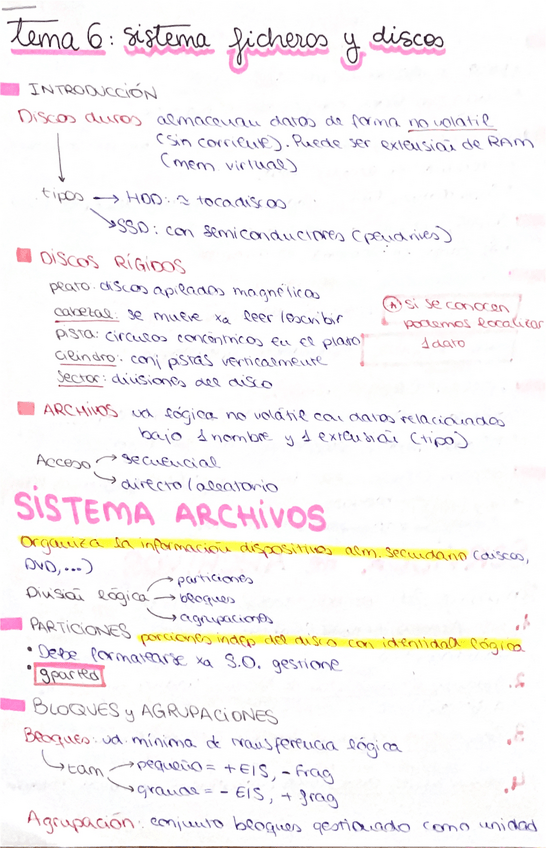 tema 6: sistema ficheros y discos
INTRODUCCIÓN
Discos duros almacenan datos de forma no volátil
(sin corriente). Puede ser extensión de RAM
(mem virtual)
tipos → HDD: ≈ tocadiscos
↘ SSD: con semiconductores (pendrives)
DISCOS RÍGIDOS
plato: discos apilados magnéticos
cabezal: se mueve xa leer/escribir
pista: círculos concéntricos en el plato
cilindro: conj pistas verticalmente
sector: divisiones del disco
si se conocen
podemos localizar
1 dato
ARCHIVOS ud lógica no volátil con datos relacionados
bajo 1 nombre y 1 extensión (tipo)
Acceso → secuencial
→ directo/aleatorio
SISTEMA ARCHIVOS
Organiza la información dispositivos alm. secundario (discos,
DVD, ...)
División lógica → particiones
→ bloques
→ agrupaciones
PARTICIONES porciones indep del disco con identidad lógica
• Debe formatearse xa S.O. gestione
• gparted
BLOQUES y AGRUPACIONES
Bloques: ud. mínima de transferencia lógica
↳ tam → pequeño = + E/S, - frag
→ grande = - E/S, + frag
Agrupación: conjunto bloques gestionado como unidad